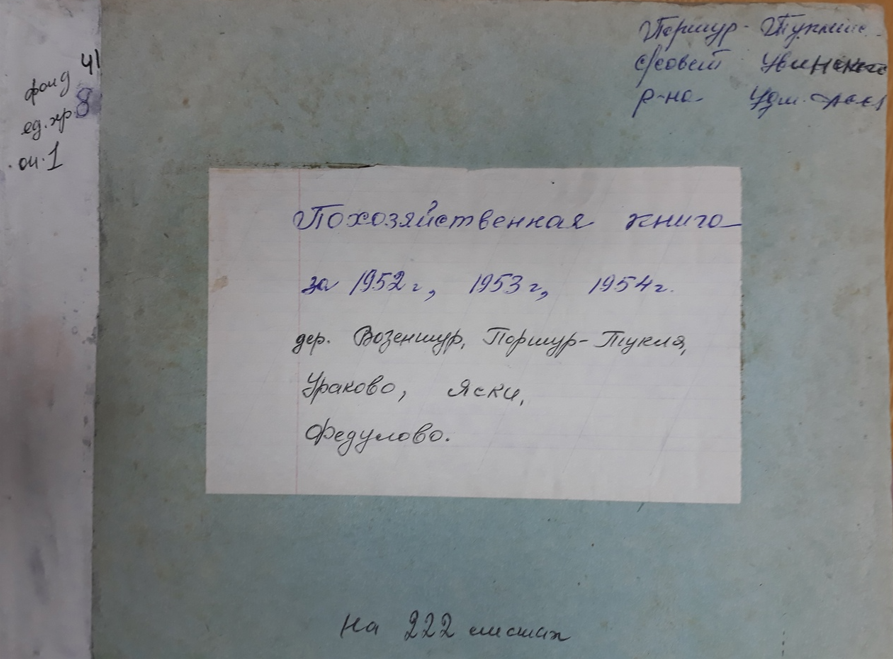 фонд 41
ед.хр. 8
оп.1
Поршур-Туклинс
с/совет Увинского
р-на Удм.
Похозяйственная книга
за 1952г, 1953г, 1954г.
дер. Возеншур, Поршур-Тукля,
Ураково, Яски,
Федулово.
на 222 листах